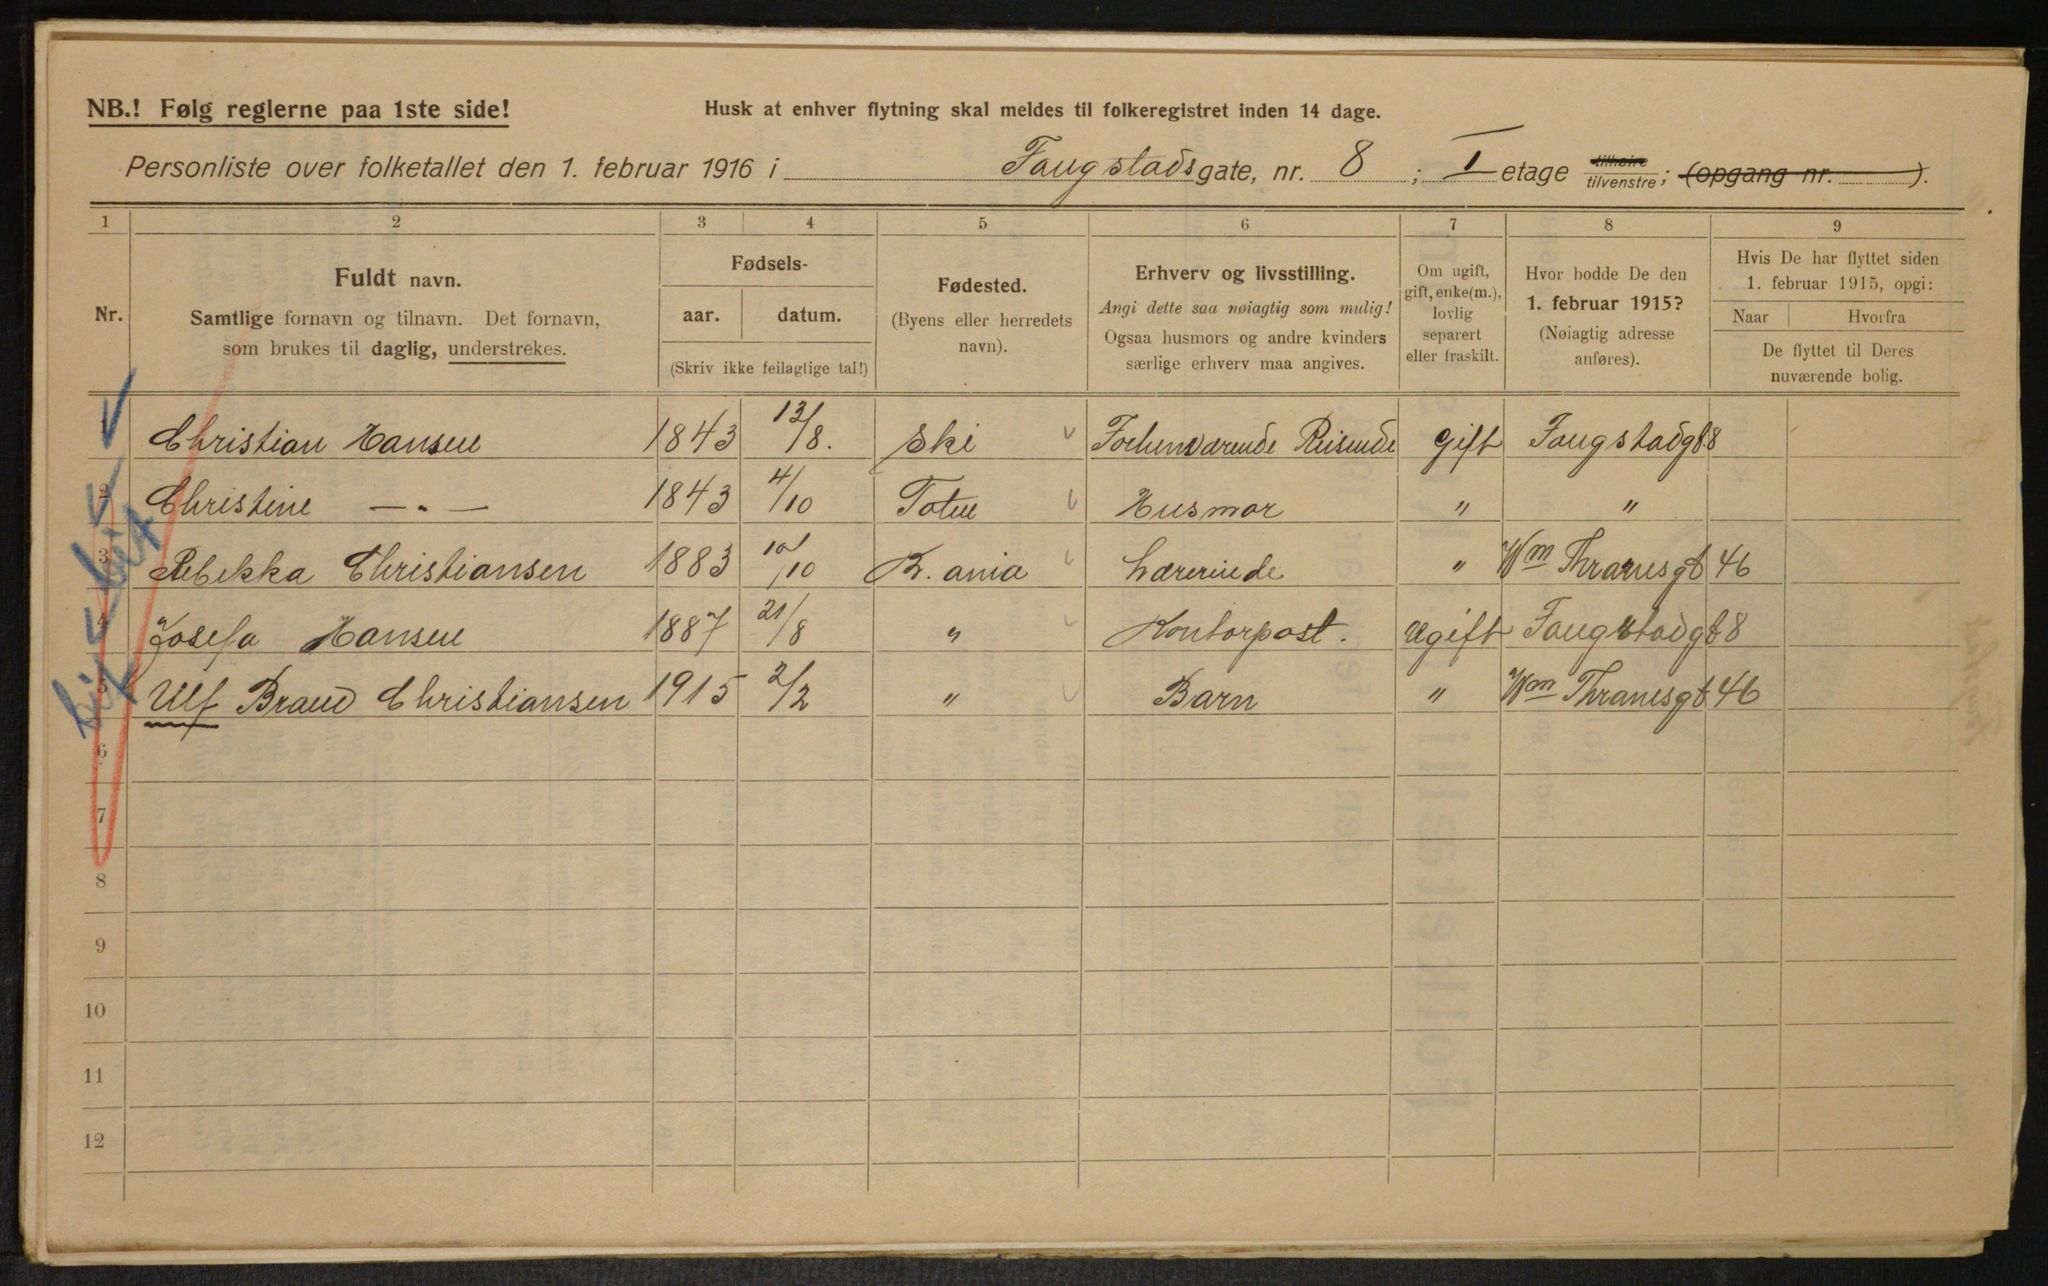 NB.! Følg reglerne paa 1ste side!
Husk at enhver flytning skal meldes til folkeregistret inden 14 dage.
Personliste over folketallet den 1. februar 1916 i Faugstadsgate, nr. 8; I etage tilhøire tilvenstre; (opgang nr. ).
1 2 3 4 5 6 7 8 9
Nr.
Fuldt navn.
Samtlige fornavn og tilnavn. Det fornavn,
som brukes til daglig, understrekes.
Fødsels-
aar. datum.
(Skriv ikke feilagtige tal!)
Fødested.
(Byens eller herredets
navn).
Erhverv og livsstilling.
Angi dette saa nøiagtig som mulig!
Ogsaa husmors og andre kvinders
særlige erhverv maa angives.
Om ugift,
gift, enke(m.),
lovlig
separert
eller fraskilt.
Hvor bodde De den
1. februar 1915?
(Nøiagtig adresse
anføres).
Hvis De har flyttet siden
1. februar 1915, opgi:
Naar Hvorfra
De flyttet til Deres
nuværende bolig.
1 Christian Hansen 1843 13/8. Ski Reisende Gift Faugstadgt 8
2 Christine —„— 1843 4/10 Toten Husmor „ „
3 Rebekka Christiansen 1883 10/10 Kr.ania Lærerinde „ Wm Thranesgt 46
4 Josefa Hansen 1887 21/8 „ Kontorpost. Ugift Faugstadgt 8
5 Ulf Brand Christiansen 1915 2/2 „ Barn „ Wm Thranesgt 46
6
7
8
9
10
11
12